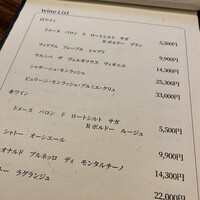 Wine List
白ワイン
ドメーヌ バロン ド ロートシルト サガ
R ボルドー ブラン
5,500円
ウィリアム フェーブル シャブリ
9,900円
ヤルンバ ザ ヴェルギリウス ヴィオニエ
14,300円
シャサーニュ・モンラッシェ
25,300円
ピュリニー・モンラッシェ・プルミエ・クリュ
33,000円
赤ワイン
ドメーヌ バロン ド ロートシルト サガ
R ボルドー ルージュ
5,500円
シャトー オーシエール
9,900円
オナルド ブルネッロ ディ モンタルチーノ
14,300円
ラグランジュ
22,000円